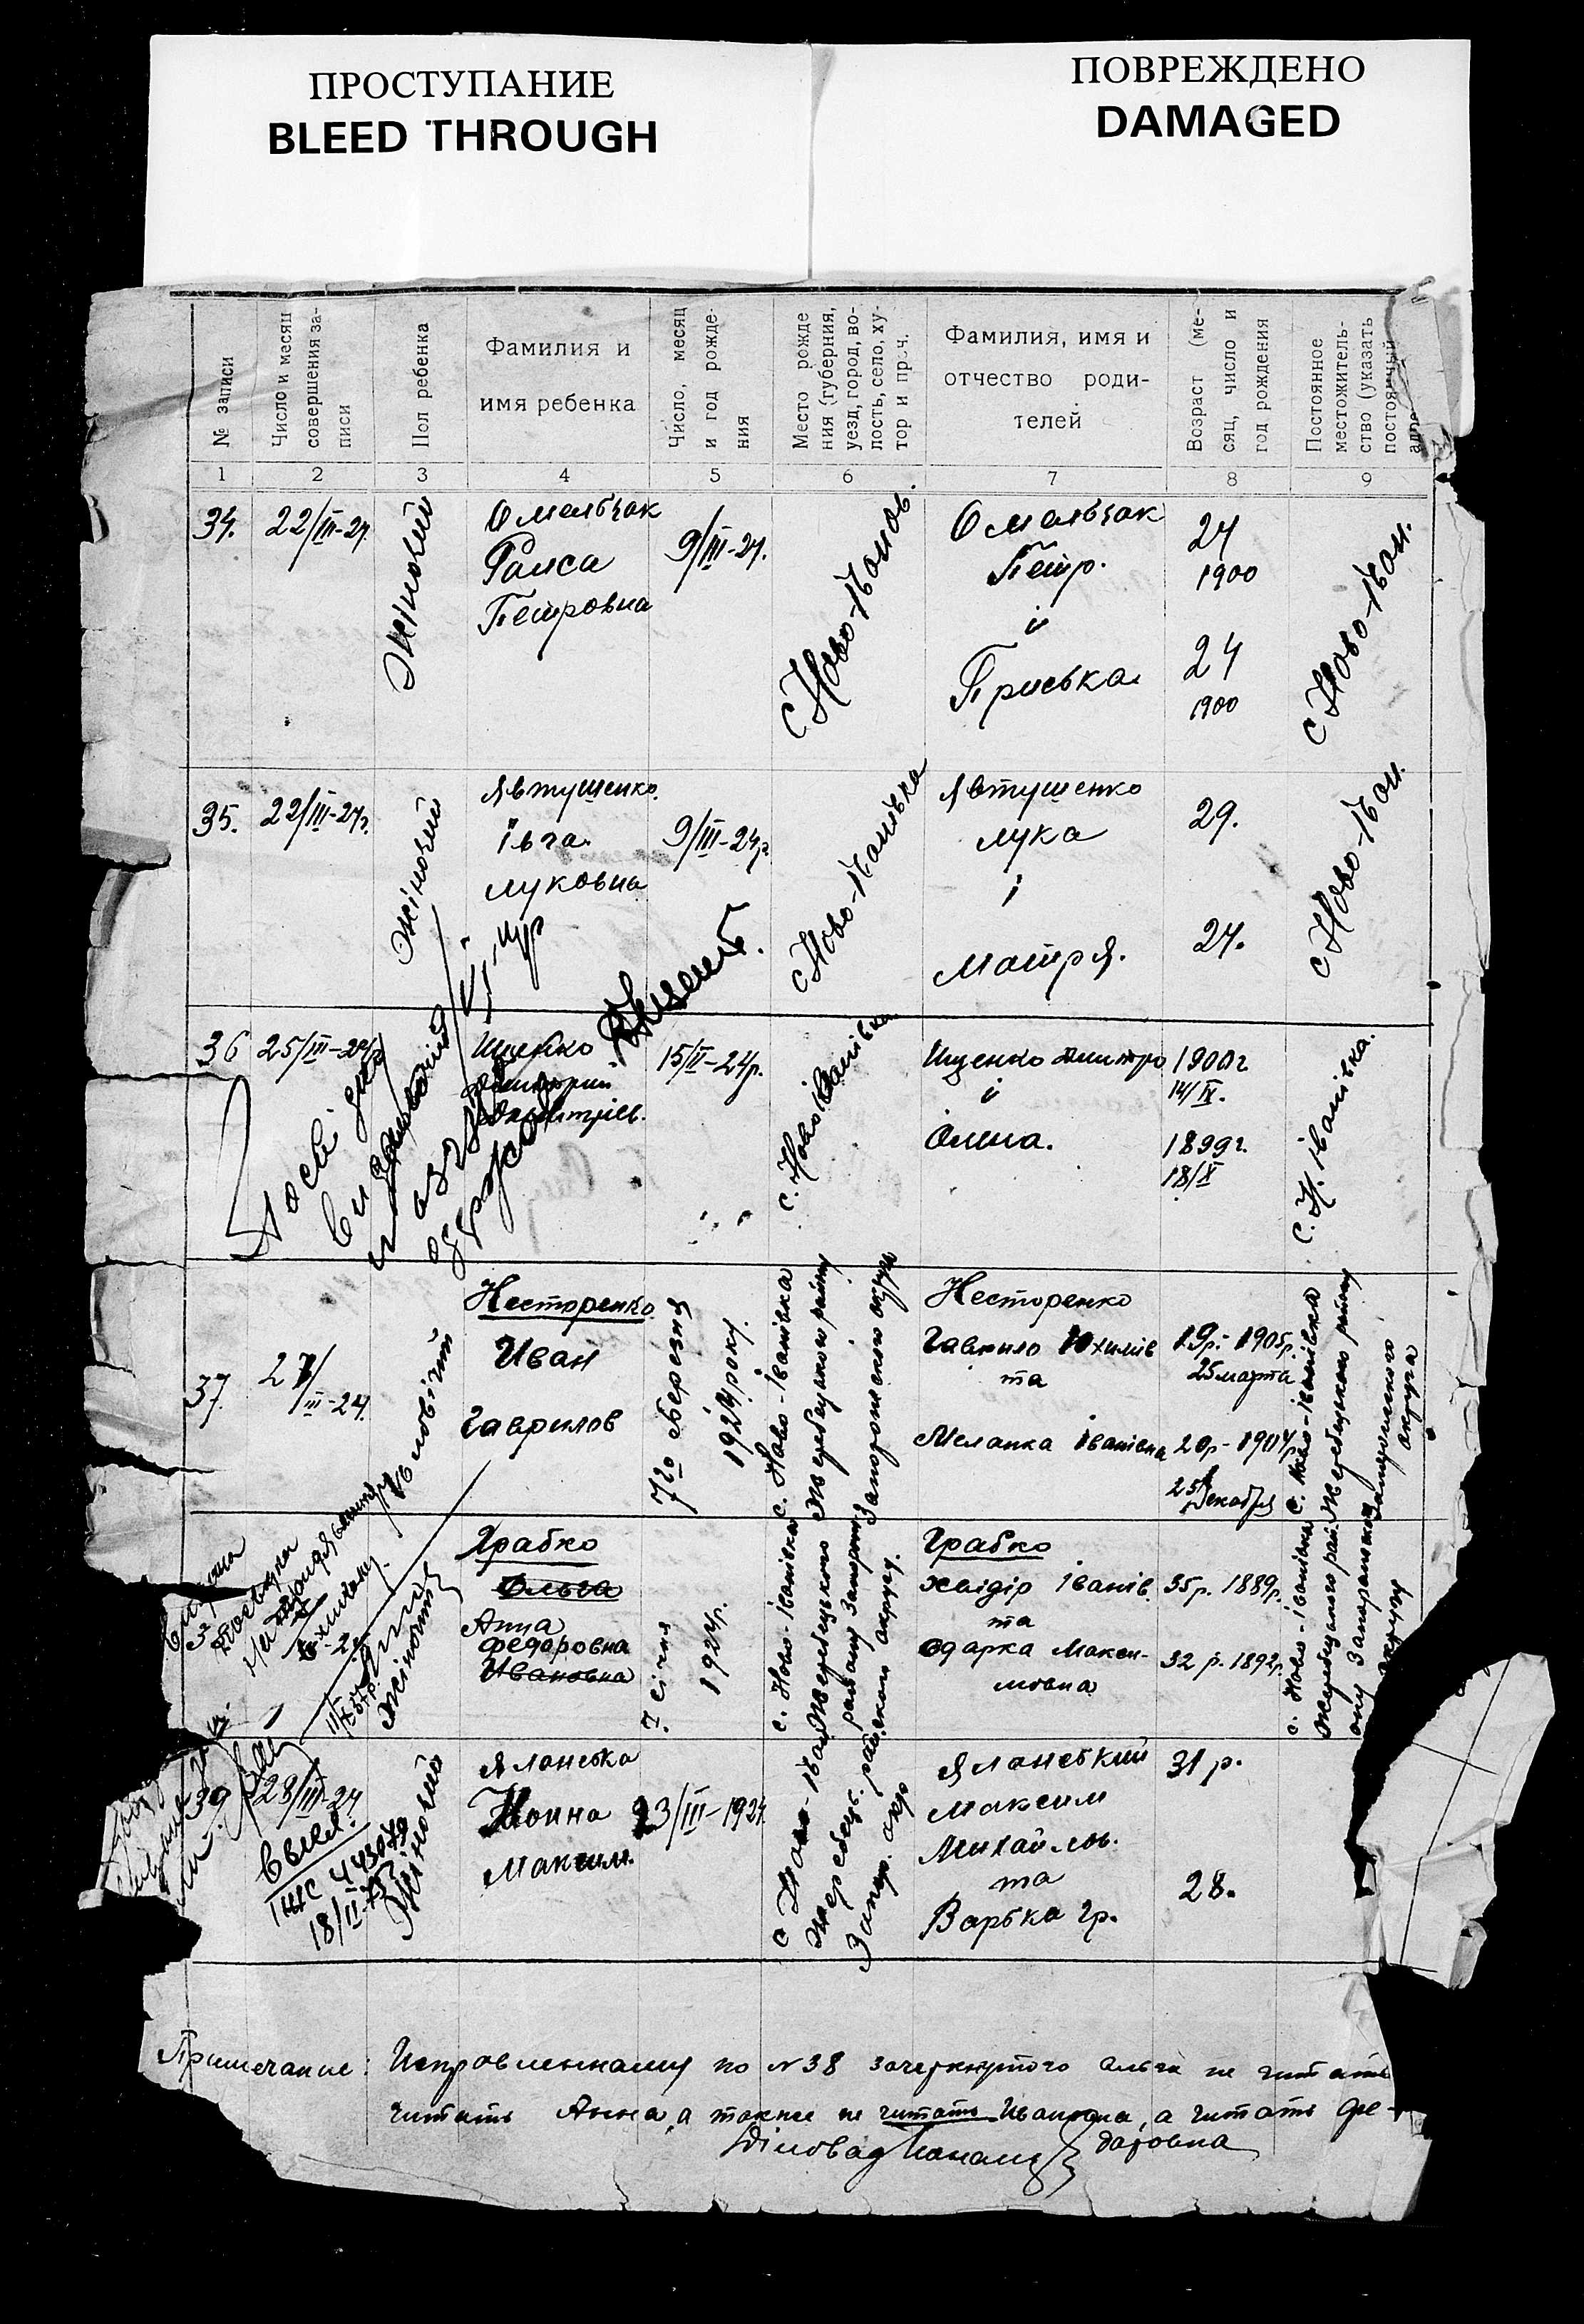 ПРОСТУПАНИЕ
BLEED THROUGH
ПОВРЕЖДЕНО
DAMAGED
№ записи
Число и месяц
совершения за-
писи
Пол ребенка
Фамилия и
имя ребенка
Число, месяц
и год рожде-
ния
Место рожде
ния (губерния,
уезд, город, во-
лость, село, ху-
тор и проч.
Фамилия, имя и
отчество роди-
телей
Возраст (ме-
сяц, число и
год рождения
Постоянное
местожитель-
ство (указать
постоянный
адре
1 2 3 4 5 6 7 8 9
34.
22/III-24.
Жіночий
Омельчак
Раиса
Петровна
9/III-24.
с Ново-Іванов.
Омельчак
Петр.
і
Приська
24
1900
24
1900
с Ново-Іван.
35.
22/III-24г.
Жіночий
Явтушенко
Івга
Луковна
9/III-24р
с Ново-Іванівка
Явтушенко
Лука
і
Мотря.
29.
24.
с Ново-Іван.
36
25/III-24р
Ищенко
Дмитрий
Дмитрієв.
15/II-24р.
с. Ново Іванівка
Ищенко Дмитро
и
Олена.
1900г
14/IX.
1899г.
18/X
с. Н. Іванівка.
37.
27/
III-24.
Чоловічий
Несторенко
Иван
Гаврилов
7го Березня
1924 року.
с. Ново-Іванівка
Жеребецького району
Запорожського округу
Несторенко
Гаврило Юхимів
та
Меланка Іванівна
19р. 1905р.
25 марта
20р-1904р
25 декабря
с. Ново-Іванівка
Жеребецького району
Запорожського
округа
Жіночий
Грабко
Ольга
Анна
Федоровна
Ивановна
7. січня
1924р.
с. Ново-Іванівка
Жеребецького
району Запорож
округу.
Грабко
Хвідір Іванів.
та
Одарка Макси-
мовна
35р. 1889р.
32 р. 1892р.
с. Ново-Іванівка
Жеребецького рай
ону Запорожськ
округу
39
28/III-24
Выд.
18/II-
Жіночий
Яланська
Нонна
Максим.
23/III-1924
с Ново-Іван
Жеребець. рай
Запор. окр
Яланський
Максим
Михайлов.
та
Варька Гр.
31 р.
28.
Примечание: Исправленному по №38 зачеркнутого Ольга не читать
читать Анна, а также не читать Ивановна, а читать Фе-
даровна
Діловод